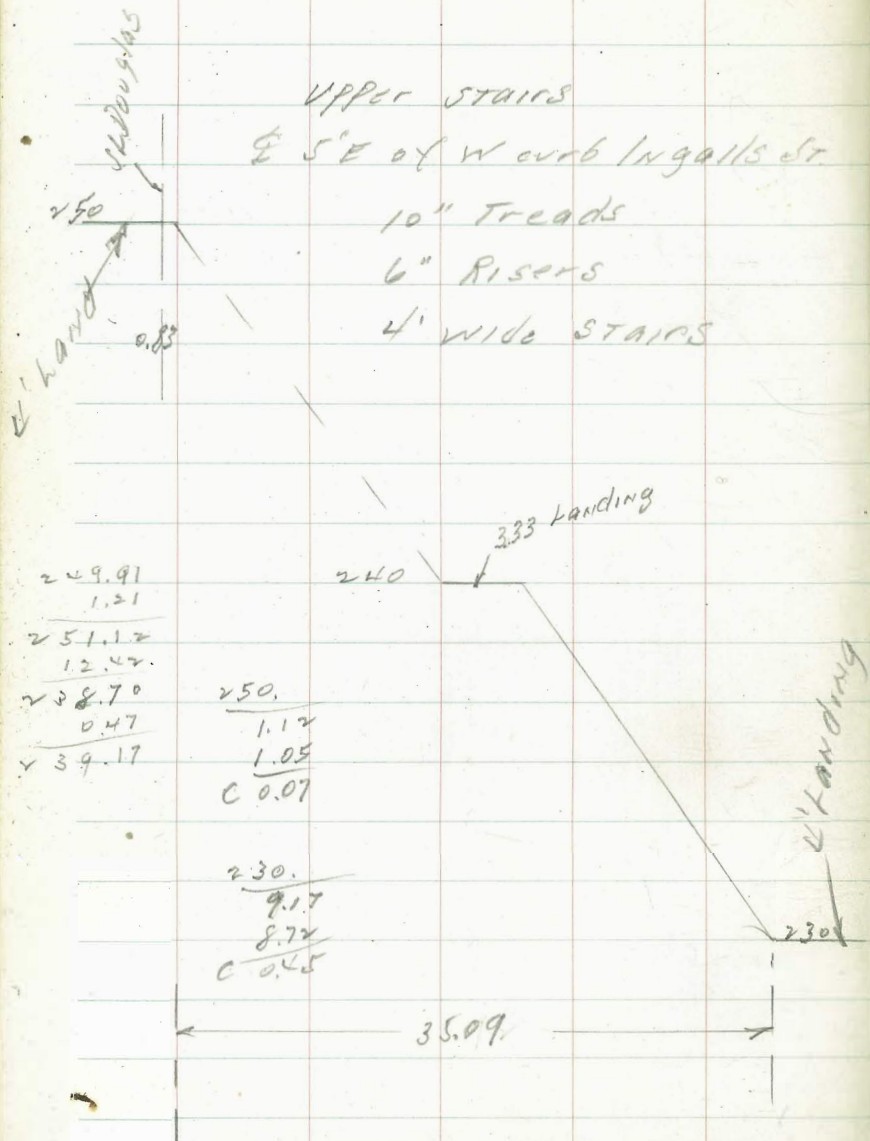 Upper Stairs
℄ 5'E of W curb Ingalls St.
10" Treads
6" Risers
4' wide Stairs
250
4' Land
0.83
3.33 Landing
240
249.91
1.21
251.12
12.42
238.70
0.47
239.17
250.
1.12
1.05
C 0.07
230.
9.17
8.72
C 0.45
4' Landing
230
35.09